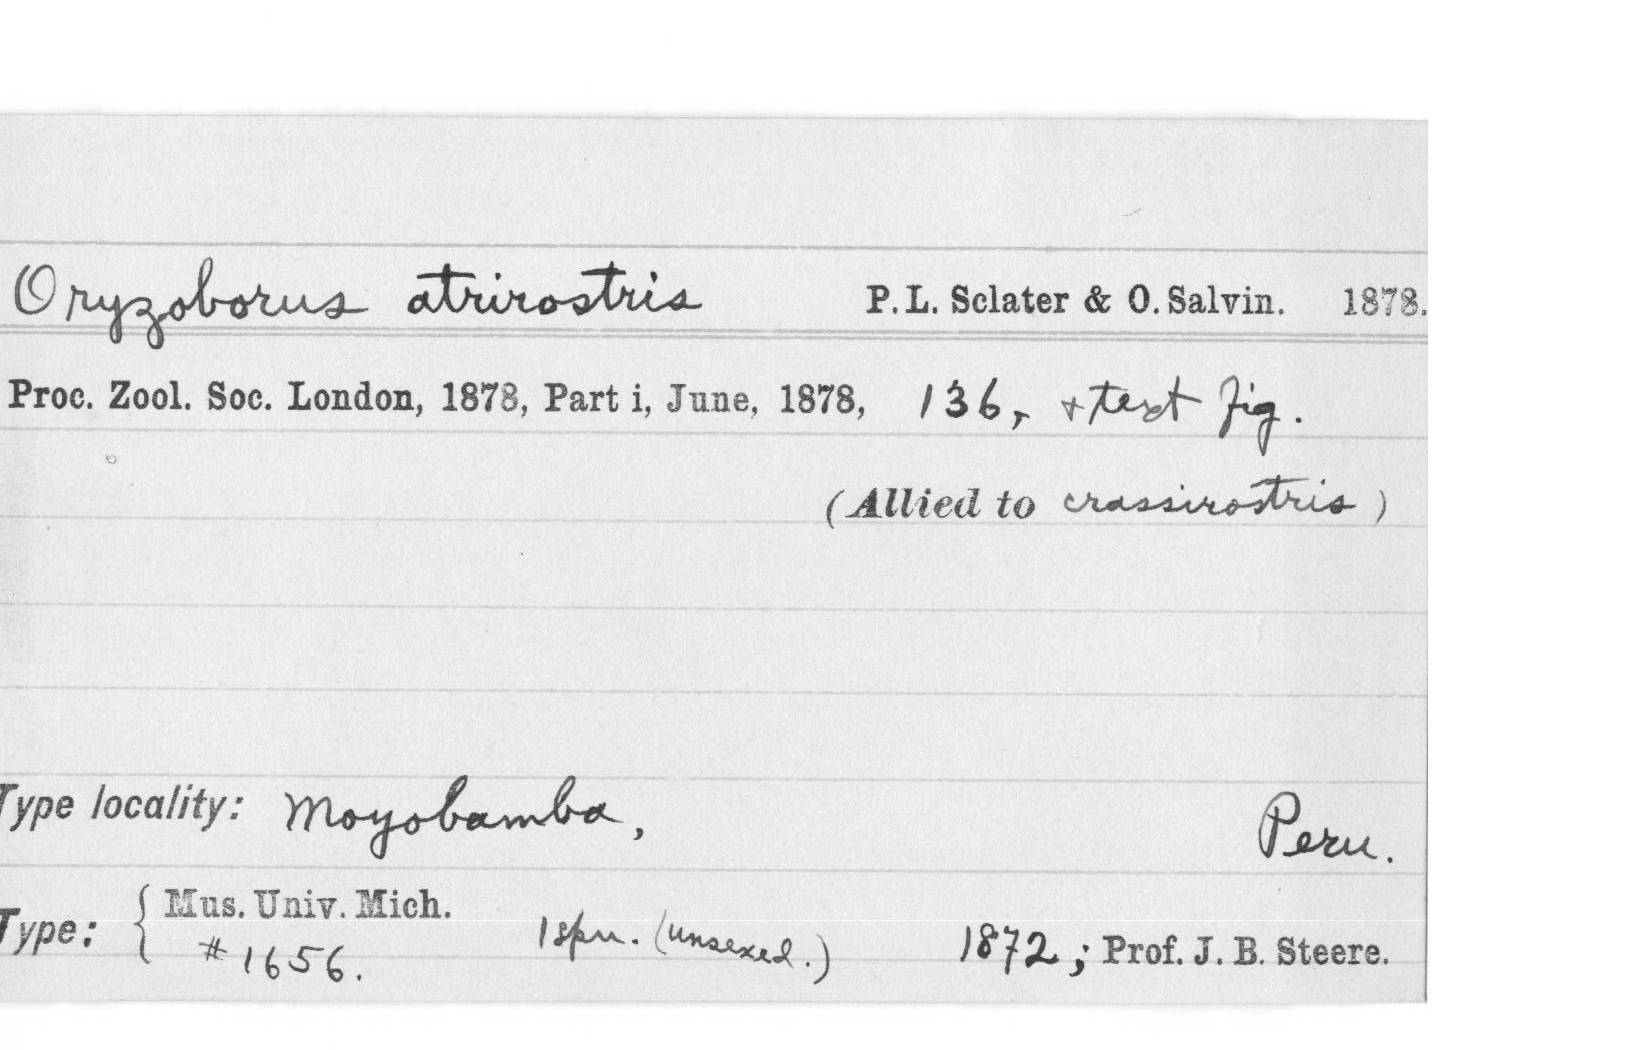 Oryzoborus atrirostris P. L. Sclater & O. Salvin. 1878.
Proc. Zool. Soc. London, 1878, Part i, June, 1878, 136, + text fig.
(Allied to crassirostris)
Type locality: Moyobamba, Peru.
Type: { Mus. Univ. Mich.
# 1656. 1 spn. (unsexed.) 1872; Prof. J. B. Steere.